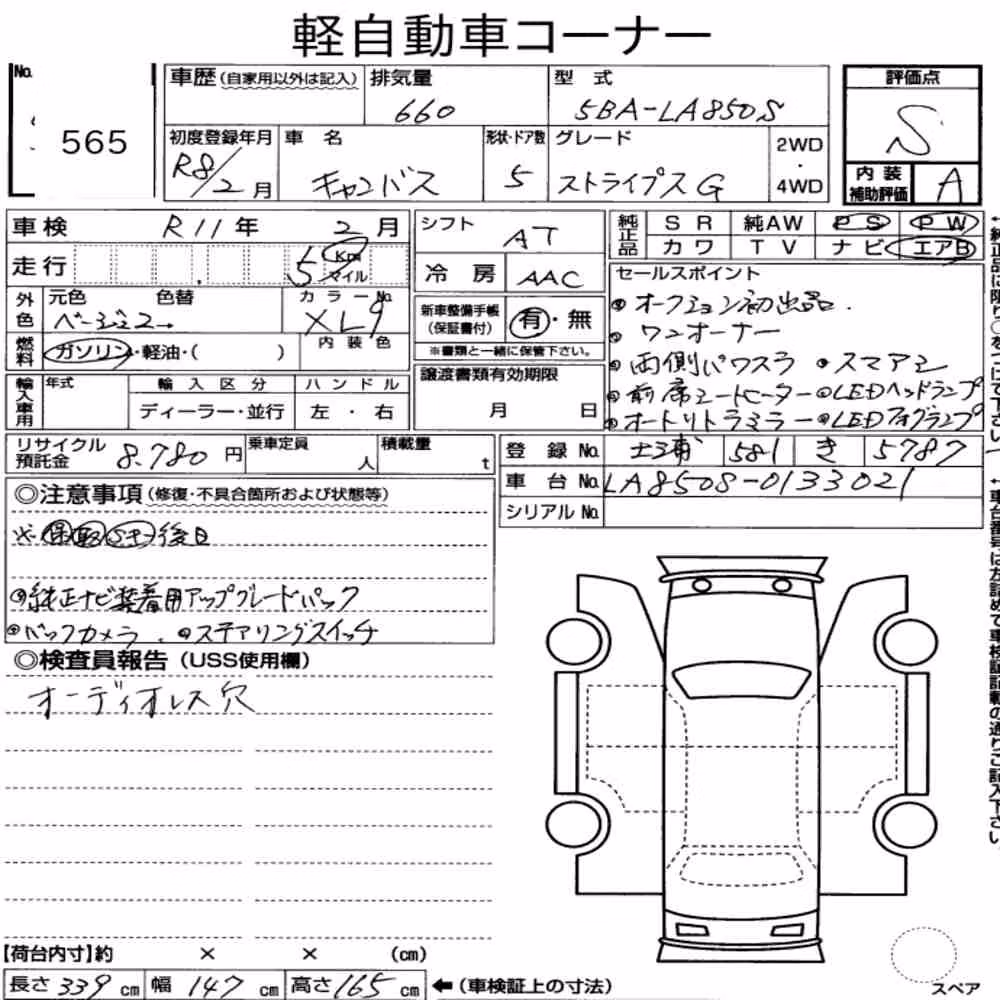 軽自動車コーナー
No.
565
車歴 (自家用以外は記入)
排気量
660
型式
5BA-LA850S
評価点
S
初度登録年月
R8/2月
車名
キャンバス
形状・ドア数
5
グレード
ストライプスG
2WD
・
4WD
内装
補助評価
A
車検 R11年 2月
走行 5 Km
マイル
シフト
AT
冷房 AAC
純正品
SR 純AW PS PW
カワ TV ナビ エアB
外色
元色 色替
ベージュ2
カラーNo.
XL9
燃料
ガソリン・軽油・( )
内装色
新車整備手帳
(保証書付)
有・無
※書類と一緒に保管下さい。
セールスポイント
オークション初出品.
ワンオーナー
両側パワスラ ・スマアシ
前席シートヒーター LEDヘッドランプ
オートリトラミラー LEDフォグランプ
輸入車用
年式
輸入区分
ハンドル
ディーラー・並行
左・右
譲渡書類有効期限
月 日
リサイクル
預託金
8.780円
乗車定員
人
積載量
t
登録No. 土浦 581 き 5787
車台No. LA850S-0133021
シリアルNo.
◎注意事項 (修復・不具合箇所および状態等)
※保取 後日
純正ナビ装着用アップグレードパック
バックカメラ. ステアリングスイッチ
◎検査員報告 (USS使用欄)
オーディオレス穴
【荷台内寸】約 × × (cm)
長さ 339 cm 幅 147 cm 高さ 165 cm ←(車検証上の寸法)
スペア